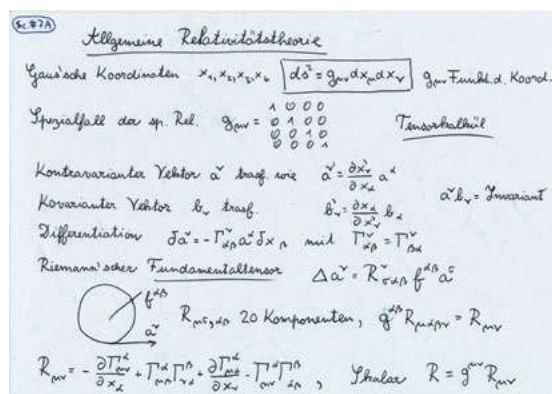 Sc.#7A
Allgemeine Relativitätstheorie
Gaus'sche Koordinaten x₁, x₂, x₃, x₄ ds² = g_μν dx_μ dx_ν g_μν Funkt. d. Koord.
Spezialfall der sp. Rel. g_μν =
1 0 0 0
0 1 0 0
0 0 1 0
0 0 0 1
Tensorkalkül
Kontravarianter Vektor a^ν trasf. wie a'^ν = ∂x'_ν/∂x_α a^α
Kovarianter Vektor b_ν trasf. b'_ν = ∂x_α/∂x'_ν b_α
a^ν b_ν = Invariant
Differentiation δa^ν = -Γ^ν_αβ a^α δx_β mit Γ^ν_αβ = Γ^ν_βα
Riemann'scher Fundamentaltensor Δa^ν = R^ν_σαβ f^αβ a^σ
f^αβ
a^ν
R_μσ,αβ 20 Komponenten, g^αβ R_μαβν = R_μν
R_μν = -∂Γ^α_μν/∂x_α + Γ^α_μβ Γ^β_να + ∂Γ^α_μα/∂x_ν - Γ^α_μν Γ^β_αβ, Skalar R = g^μν R_μν